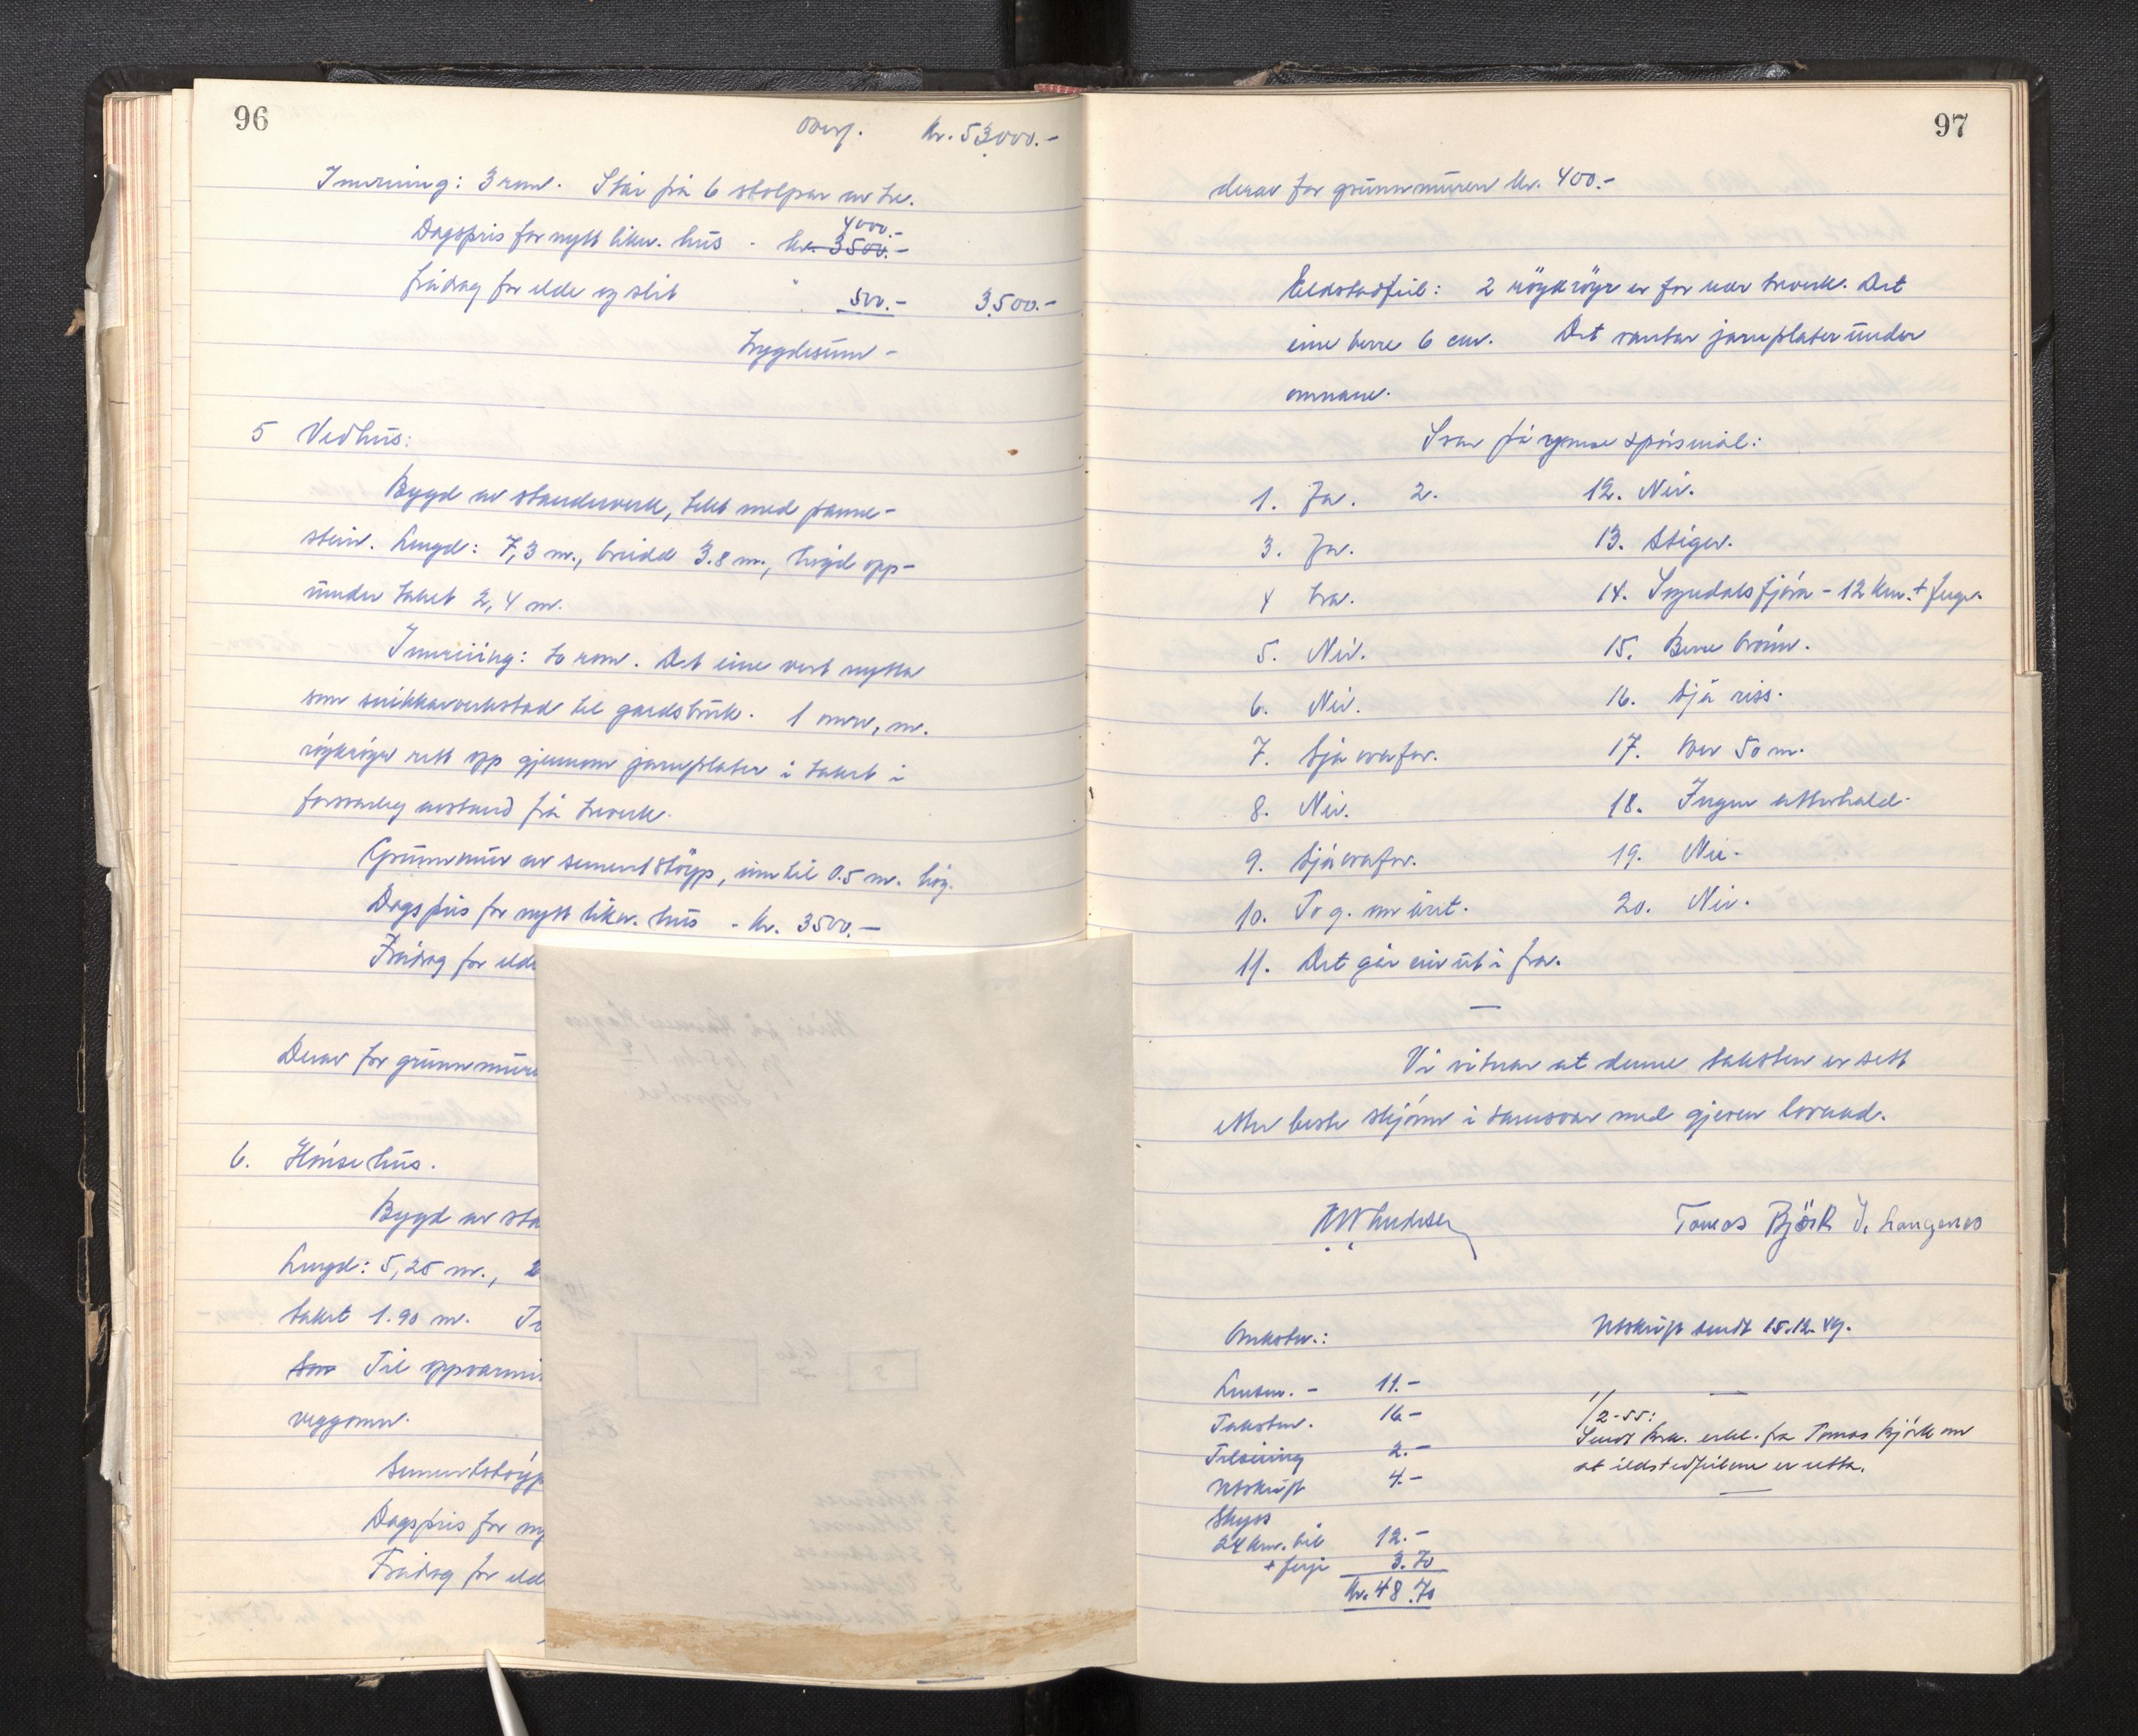 96
Overf. Kr. 53,000.-
Innreiing: 3 rom. Står på 6 stolpar av tre.
4000.-
Dagspris for nytt likn. hus - kr. 3500.-
frådrag for elde og slit " 500.- 3.500.-
Trygdesum -
5 Vedhus:
Bygd av standerverk, tekt med panne-
stein. Lengd: 7,3 m., breidd 3.8 m., høgd opp-
under taket 2,4 m.
Innreiing: to rom. Det eine vert nytta
som snikkarverkstad til gardsbruk. 1 omn, m.
røykrøyr rett opp gjennom jarnplater i taket i
forsvarleg avstand frå treverk.
Grunnmur av sementstøyp, inntil 0.5 m. høg.
Dagspris for nytt likn. hus - kr. 3500.-
Frådrag for elde
Derav for grunnmure
6. Hønsehus.
Bygd av sta
Lengd: 5,25 m.,
taket 1.90 m. To
som Til oppvarmi
veggomn.
Sementstøyp
Dagspris for ny
Frådrag for eld
97
derav for grunnmuren kr. 400.-
Eldstadfeil: 2 röykröyr er for nær treverk. Det
eine berre 6 cm. Det vantar jarnplater under
omnane.
Svar på ymse spørsmål:
1. Ja. 2. 12. Nei.
3. Ja. 13. Stigen.
4 tra. 14. Sogndalsfjøra - 12 km. + ferje.
5. Nei. 15. Berre brønn.
6. Nei. 16. Sjå riss.
7. Sjå ovafor. 17. Over 50 m.
8. Nei. 18. Ingen atterhald.
9. Sjå ovafor. 19. Nei.
10. To g. om året. 20. Nei.
11. Det går ein ut i fra.
—
Vi vitnar at denne taksten er sett
etter beste skjønn i samsvar med gjeven lovnad.
Tomas Björk J. Langenes
Omkostn.: Utskrift sendt 15.12.49.
Lensm. - 11.-
Takstm. 16.-
Tilseiing 2.-
Utskrift 4.-
Skyss
24 km. bil 12.-
+ ferje 3.70
Kr. 48.70
1/2-55:
Sendt brk. erkl. fra Tomas Bjørk om
at ildstedfeilene er retta.